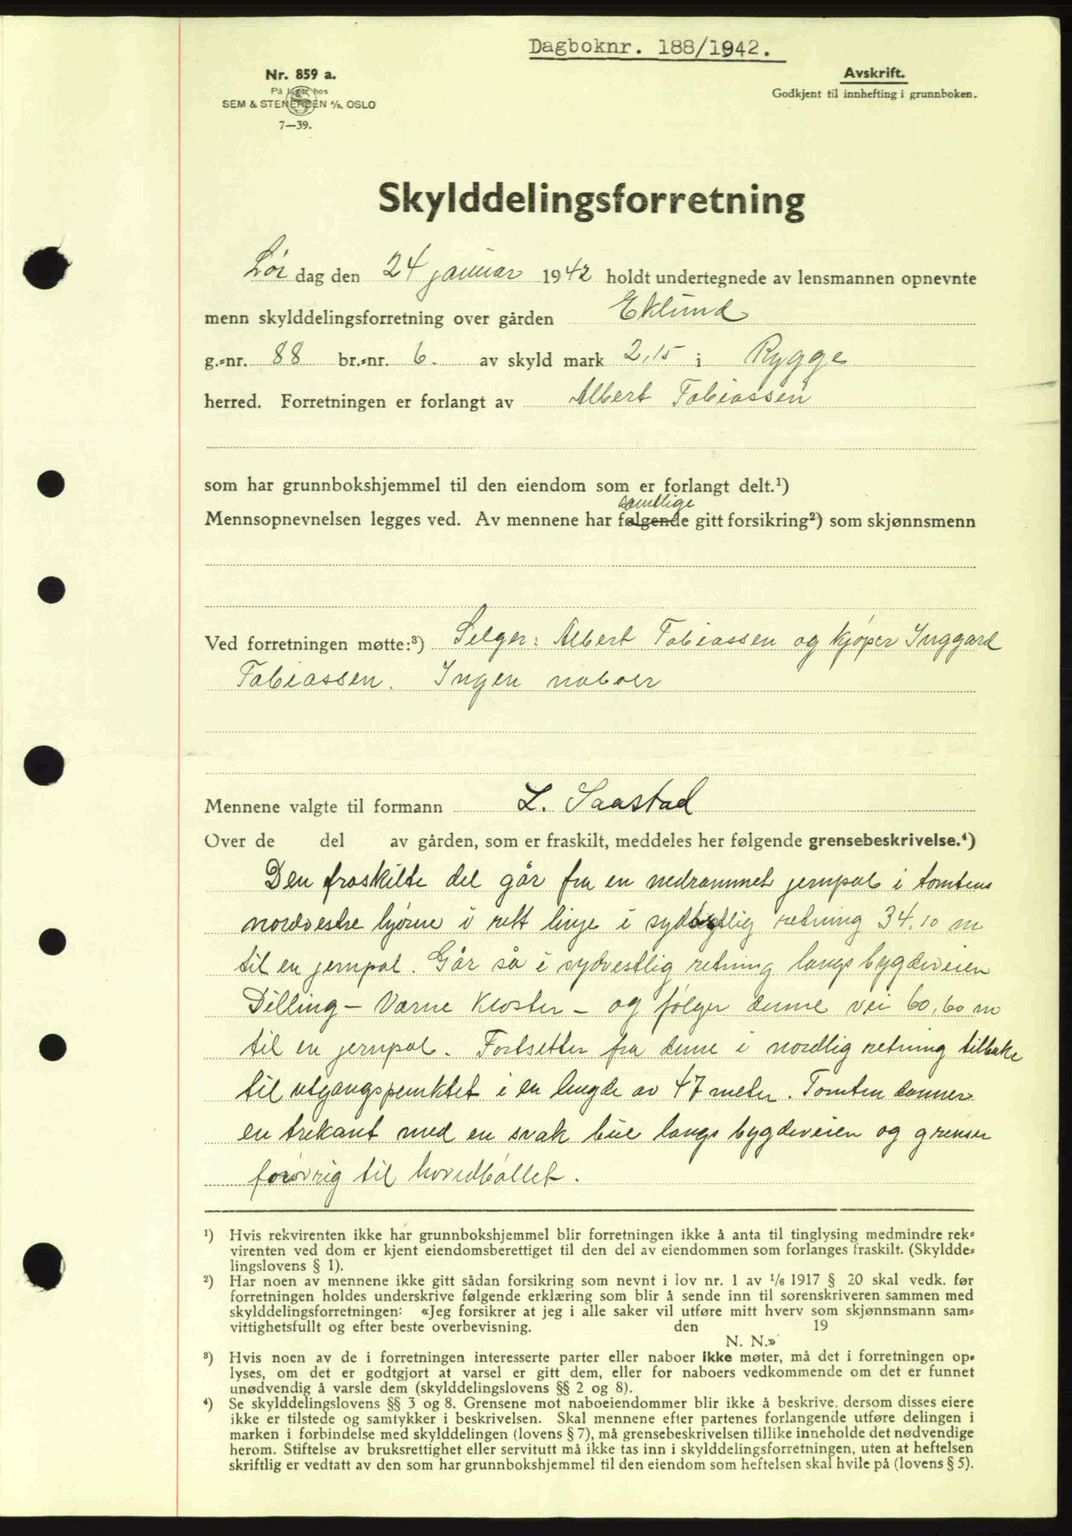 Dagboknr. 188/1942.
Nr. 859 a.
På lager hos
SEM & STENERSEN A/S. OSLO
7—39.
Avskrift.
Godkjent til innhefting i grunnboken.
Skylddelingsforretning
Lør dag den 24 januar 1942 holdt undertegnede av lensmannen opnevnte
menn skylddelingsforretning over gården Eklund
g.-nr. 88 br.-nr. 6. av skyld mark 2,15 i Rygge
herred. Forretningen er forlangt av Albert Tobiassen
som har grunnbokshjemmel til den eiendom som er forlangt delt.¹)
samtlige
Mennsopnevnelsen legges ved. Av mennene har følgende gitt forsikring²) som skjønnsmenn
Ved forretningen møtte:³) Selger: Albert Tobiassen og kjøper Inggard
Tobiassen. Ingen naboer
Mennene valgte til formann L. Saastad
Over de del av gården, som er fraskilt, meddeles her følgende grensebeskrivelse.⁴)
Den fraskilte del går fra en nedrammet jernpol i tomtens
nordvestre hjørne i rett linje i retning 34,10 m
til en jernpol. Går så i sydvestlig retning langs bygdeveien
Dilling – Værne Kloster – og følger denne vei 60,60 m
til en jernpol. Fortsetter fra denne i nordlig retning tilbake
til utgangspunktet i en lengde av 47 meter. Tomten danner
en trekant med en svak bue langs bygdeveien og grenser
forøvrig til hovedbøllet.
¹) Hvis rekvirenten ikke har grunnbokshjemmel blir forretningen ikke å anta til tinglysing medmindre rek-
virenten ved dom er kjent eiendomsberettiget til den del av eiendommen som forlanges fraskilt. (Skyldde-
lingslovens § 1).
²) Har noen av mennene ikke gitt sådan forsikring som nevnt i lov nr. 1 av 1/6 1917 § 20 skal vedk. før
forretningen holdes underskrive følgende erklæring som blir å sende inn til sorenskriveren sammen med
skylddelingsforretningen: «Jeg forsikrer at jeg i alle saker vil utføre mitt hverv som skjønnsmann sam-
vittighetsfullt og efter beste overbevisning. den 19
N. N.»
³) Hvis noen av de i forretningen interesserte parter eller naboer ikke møter, må det i forretningen op-
lyses, om det er godtgjort at varsel er gitt dem, eller for naboers vedkommende om det er funnet
unødvendig å varsle dem (skylddelingslovens §§ 2 og 8).
⁴) Se skylddelingslovens §§ 3 og 8. Grensene mot naboeiendommer blir ikke å beskrive, dersom disses eiere
ikke er tilstede og samtykker i beskrivelsen. Skal mennene efter partenes forlangende utføre delingen i
marken i forbindelse med skylddelingen (lovens § 7), må grensebeskrivelsen tillike inneholde det nødvendige
herom. Stiftelse av bruksrettighet eller servitutt må ikke tas inn i skylddelingsforretningen, uten at heftelsen
skriftlig er vedtatt av den som har grunnbokshjemmel til den eiendom som heftelsen skal hvile på (lovens § 5).